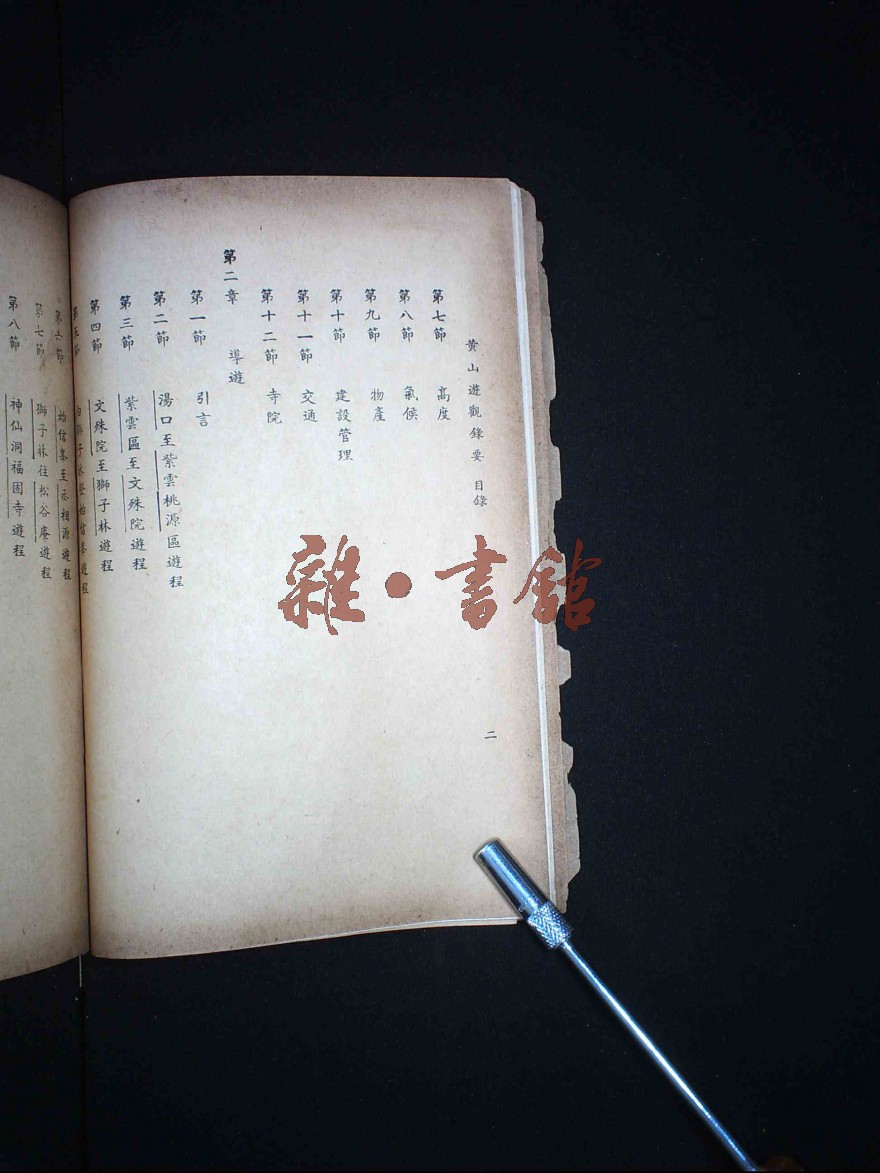 黄山遊觀錄要 目錄
第七節 高度
第八節 氣候
第九節 物產
第十節 建設管理
第十一節 交通
第十二節 寺院
第二章 導遊
第一節 引言
第二節 湯口至紫雲桃源區遊程
第三節 紫雲區至文殊院遊程
第四節 文殊院至獅子林遊程
第五節 由獅子林登始信峯遊程
第六節 始信峯至丞相源遊程
第七節 獅子林往松谷庵遊程
第八節 神仙洞福固寺遊程
二
雜·書館